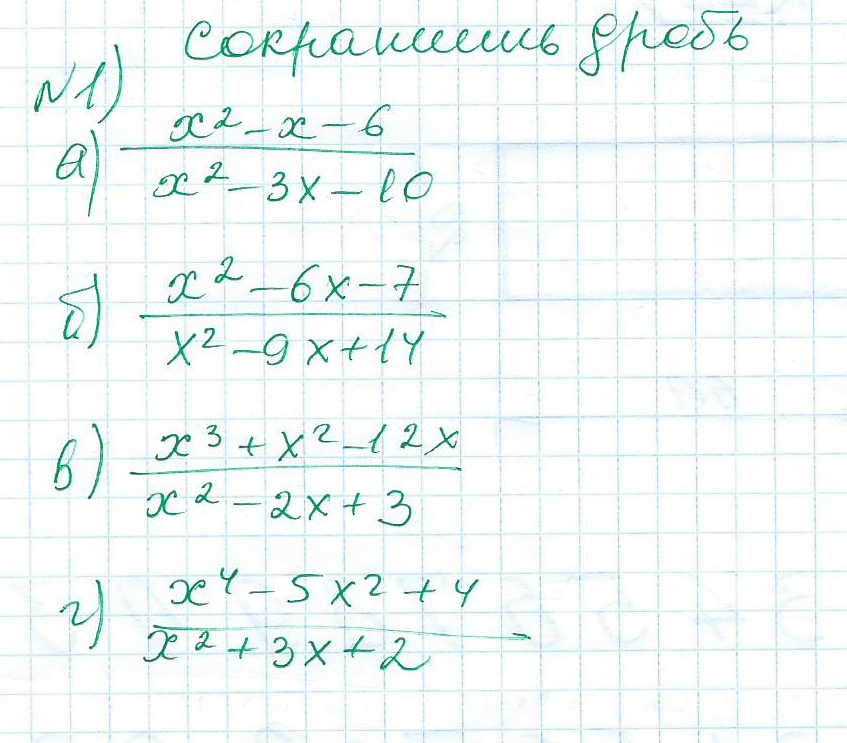 Сократить дробь
N1)
а) x² - x - 6 / x² - 3x - 10
б) x² - 6x - 7 / x² - 9x + 14
в) x³ + x² - 12x / x² - 2x + 3
г) x⁴ - 5x² + 4 / x² + 3x + 2